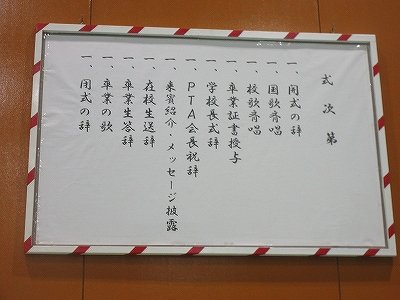 式次第
一、開式の辞
一、国歌斉唱
一、校歌斉唱
一、卒業証書授与
一、学校長式辞
一、PTA会長祝辞
一、来賓紹介・メッセージ披露
一、在校生送辞
一、卒業生答辞
一、卒業の歌
一、閉式の辞